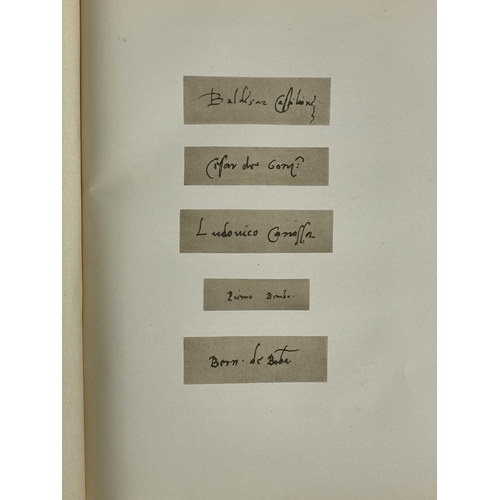 Baldesar Castiglione
Cesar de Gonz.ª
Ludovico Canossa
Pietro Bembo.
Bern. de Bibª